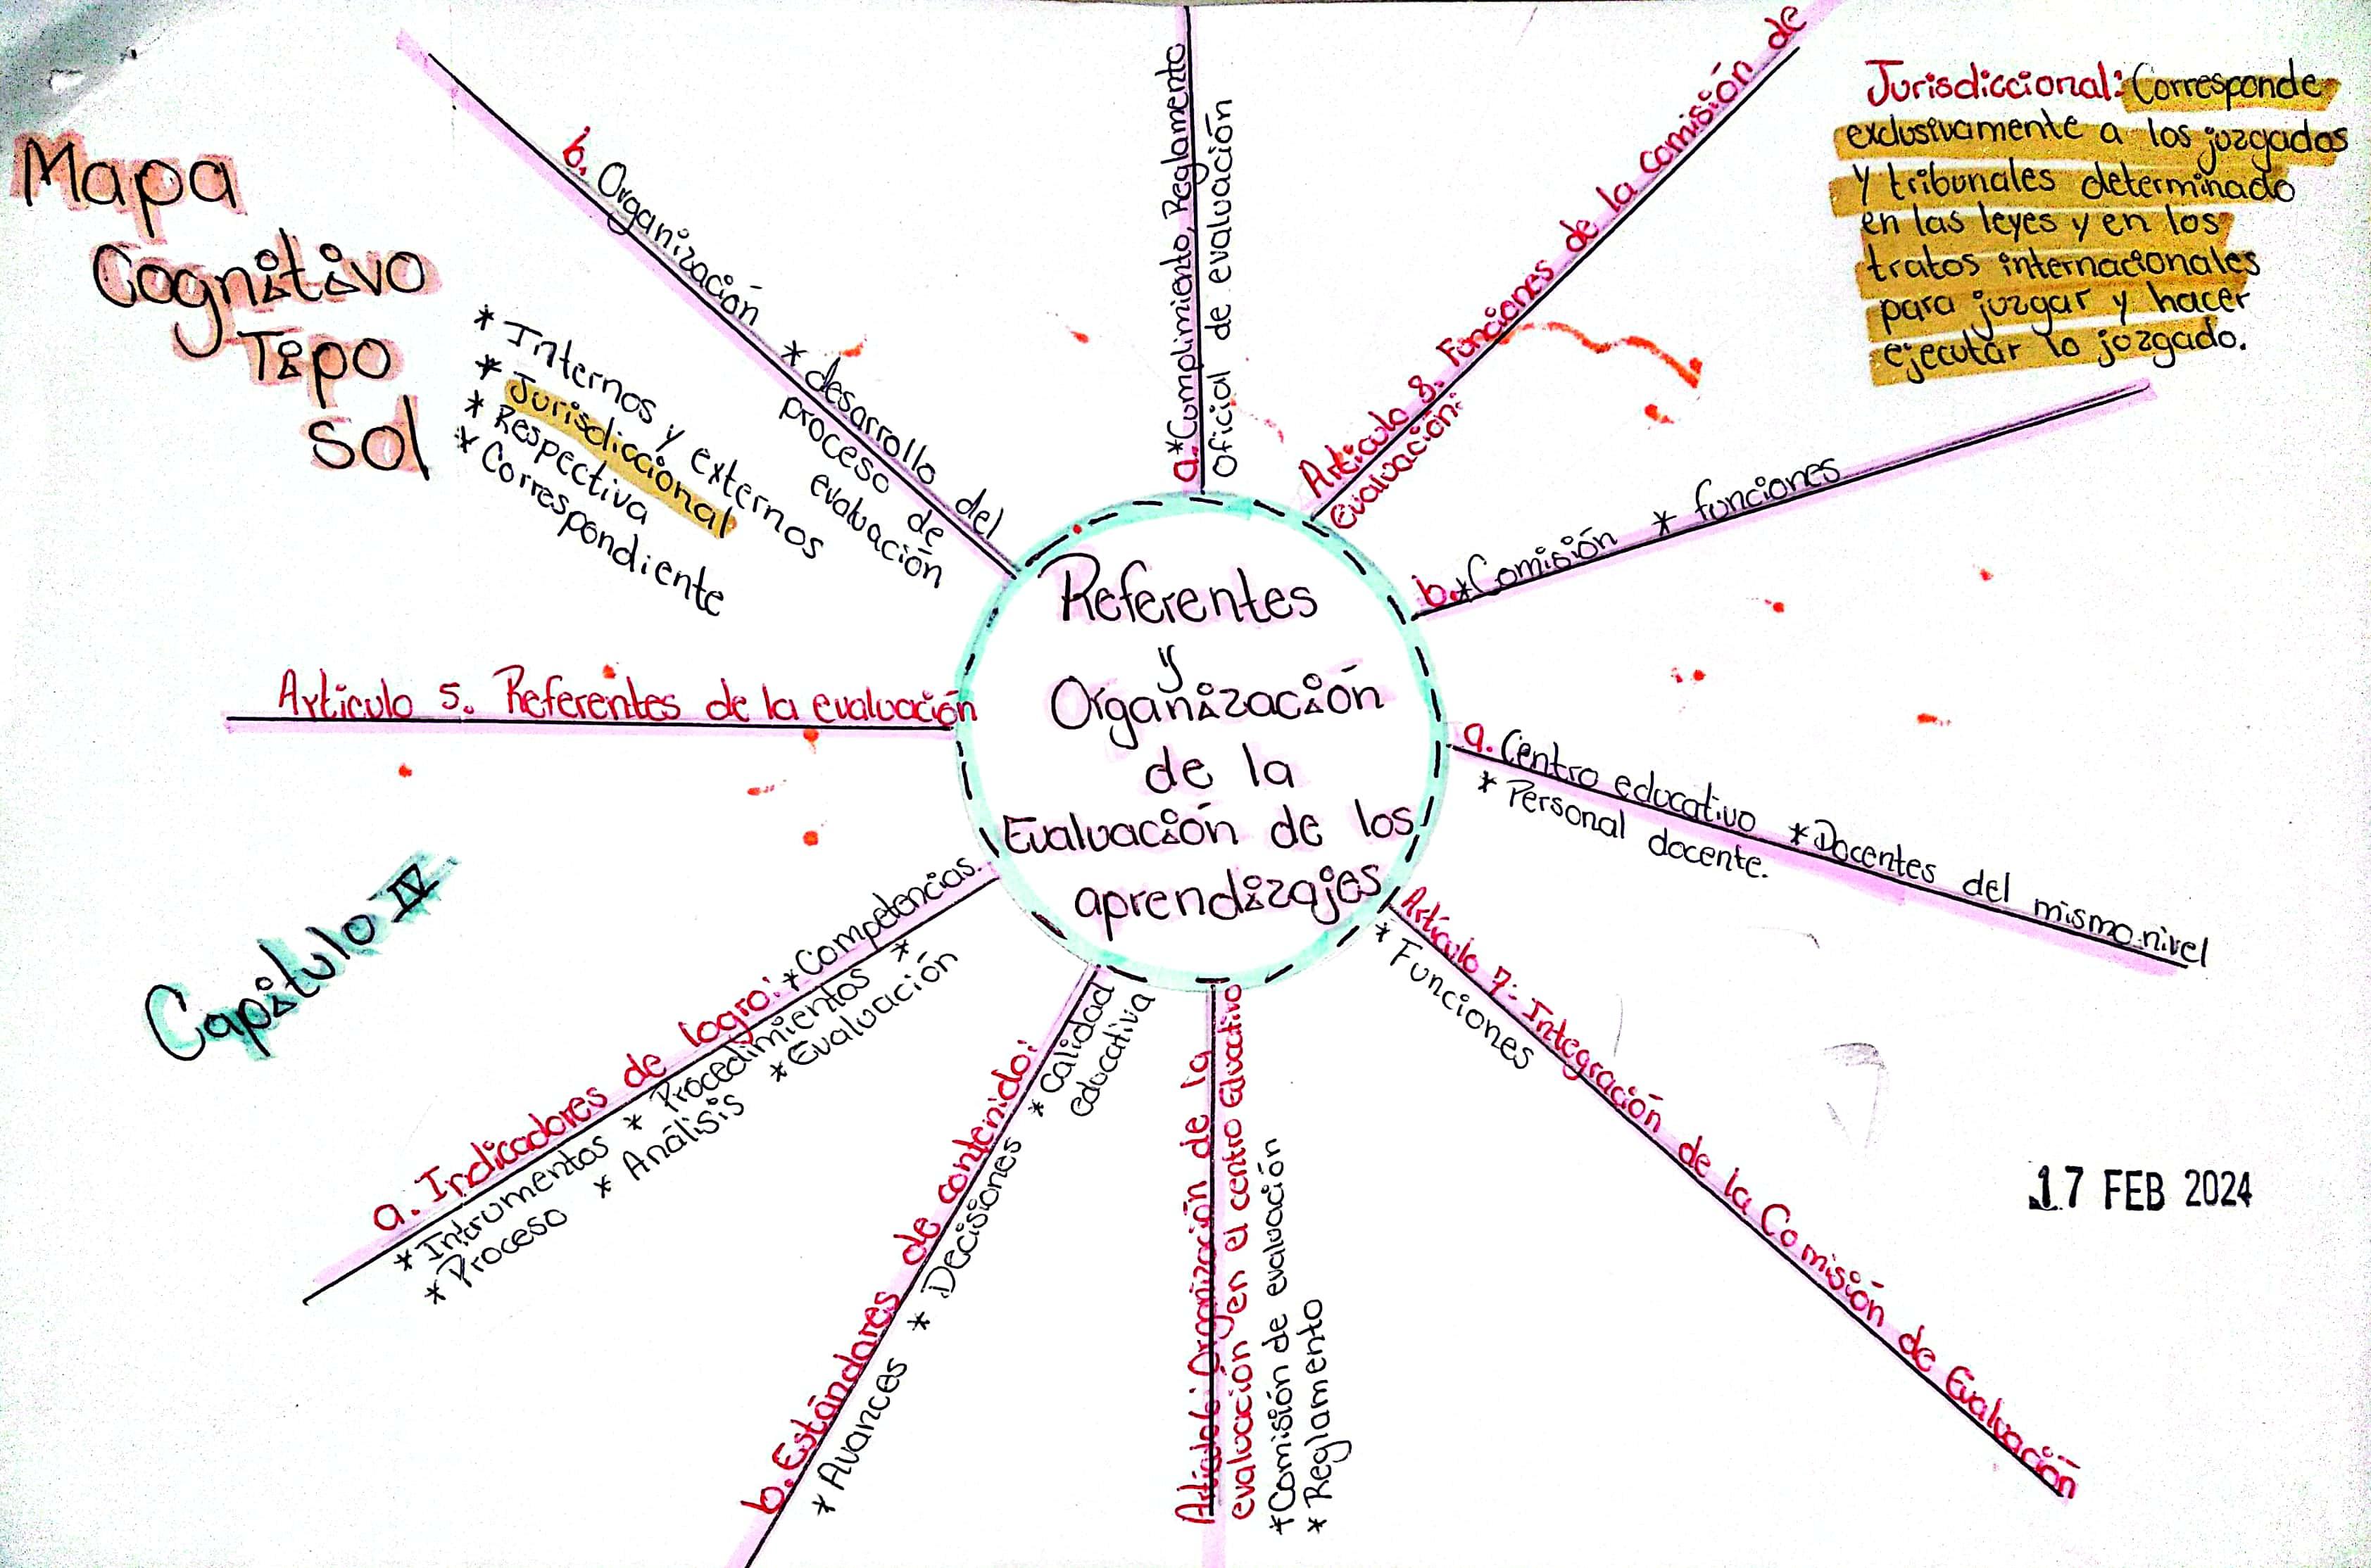 Mapa
Cognitivo
Tipo
sol
Jurisdiccional: Corresponde
exclusivamente a los juzgados
y tribunales determinado
en las leyes y en los
tratos internacionales
para juzgar y hacer
ejecutar lo juzgado.
Referentes
y
Organización
de la
Evaluación de los
aprendizajes
Capítulo IV
Articulo 5. Referentes de la evaluación
a. Indicadores de logro: *Competencias.
* Intrumentos * Procedimientos *
* Proceso * Análisis * Evaluación
b. Estándares de contenido: * Calidad
educativa
* Avances * Decisiones
Organización de la
evaluación en el centro Educativo
*Comisión de evaluación
* Reglamento
Artículo 7. Integración de la Comisión de Evaluación
* Funciones
a. Centro educativo *Docentes del mismo nivel
* Personal docente.
b. *Comisión * funciones
Articulo 8. Funciones de la comisión de
Evaluación:
a. *Cumplimiento, Reglamento
oficial de evaluación
b. Organización * desarrollo del
proceso de
evaluación
* Internos y externos
* Jurisdiccional
* Respectiva
* Correspondiente
17 FEB 2024